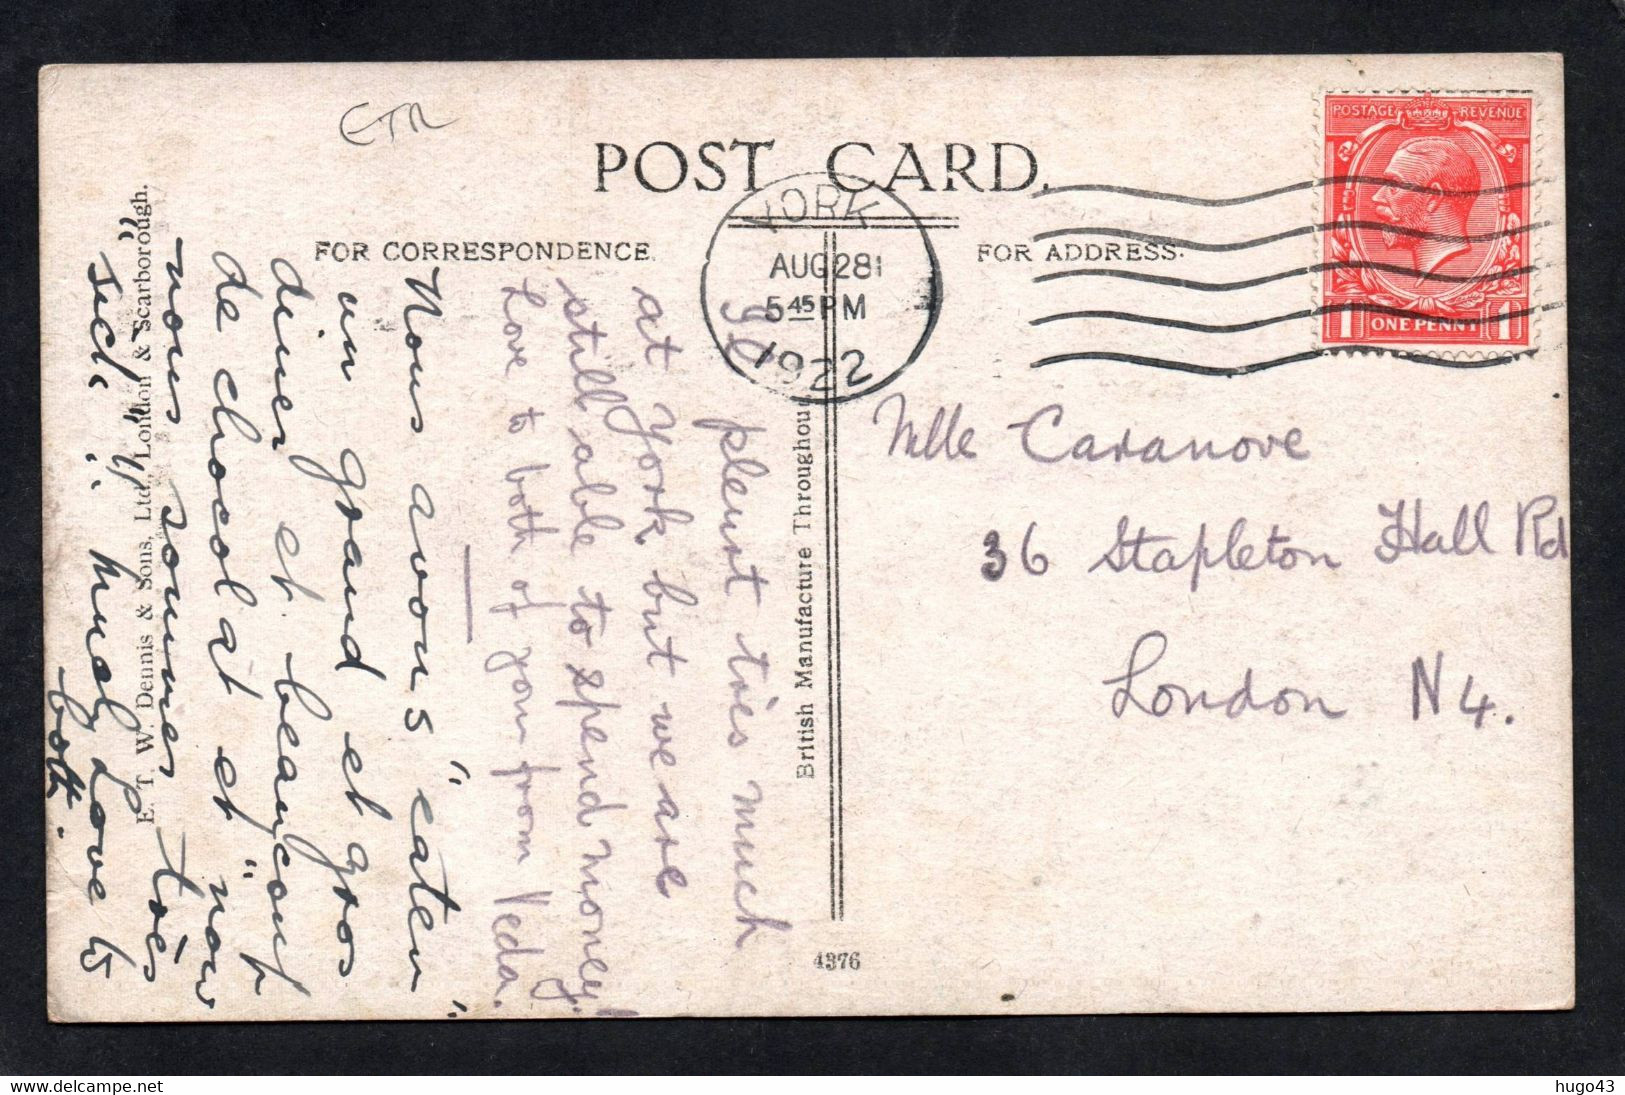 ETR
POST CARD.
FOR CORRESPONDENCE.
FOR ADDRESS.
YORK
AUG 28
5 45 PM
1922
POSTAGE REVENUE
1 ONE PENNY 1
Il pleut très much
at York but we are
still able to spend money!
Love to both of you from Veda.
Nous avons "eaten"
un grand et gros
diner et beaucoup
de chocolat et "now"
nous sommes très
"sick"!! Much love to
both.
British Manufacture Throughout.
E. T. W. Dennis & Sons, Ltd., London & Scarborough.
4376
Mlle Caranove
36 Stapleton Hall Rd
London N4.
delcampe.net
hugo43